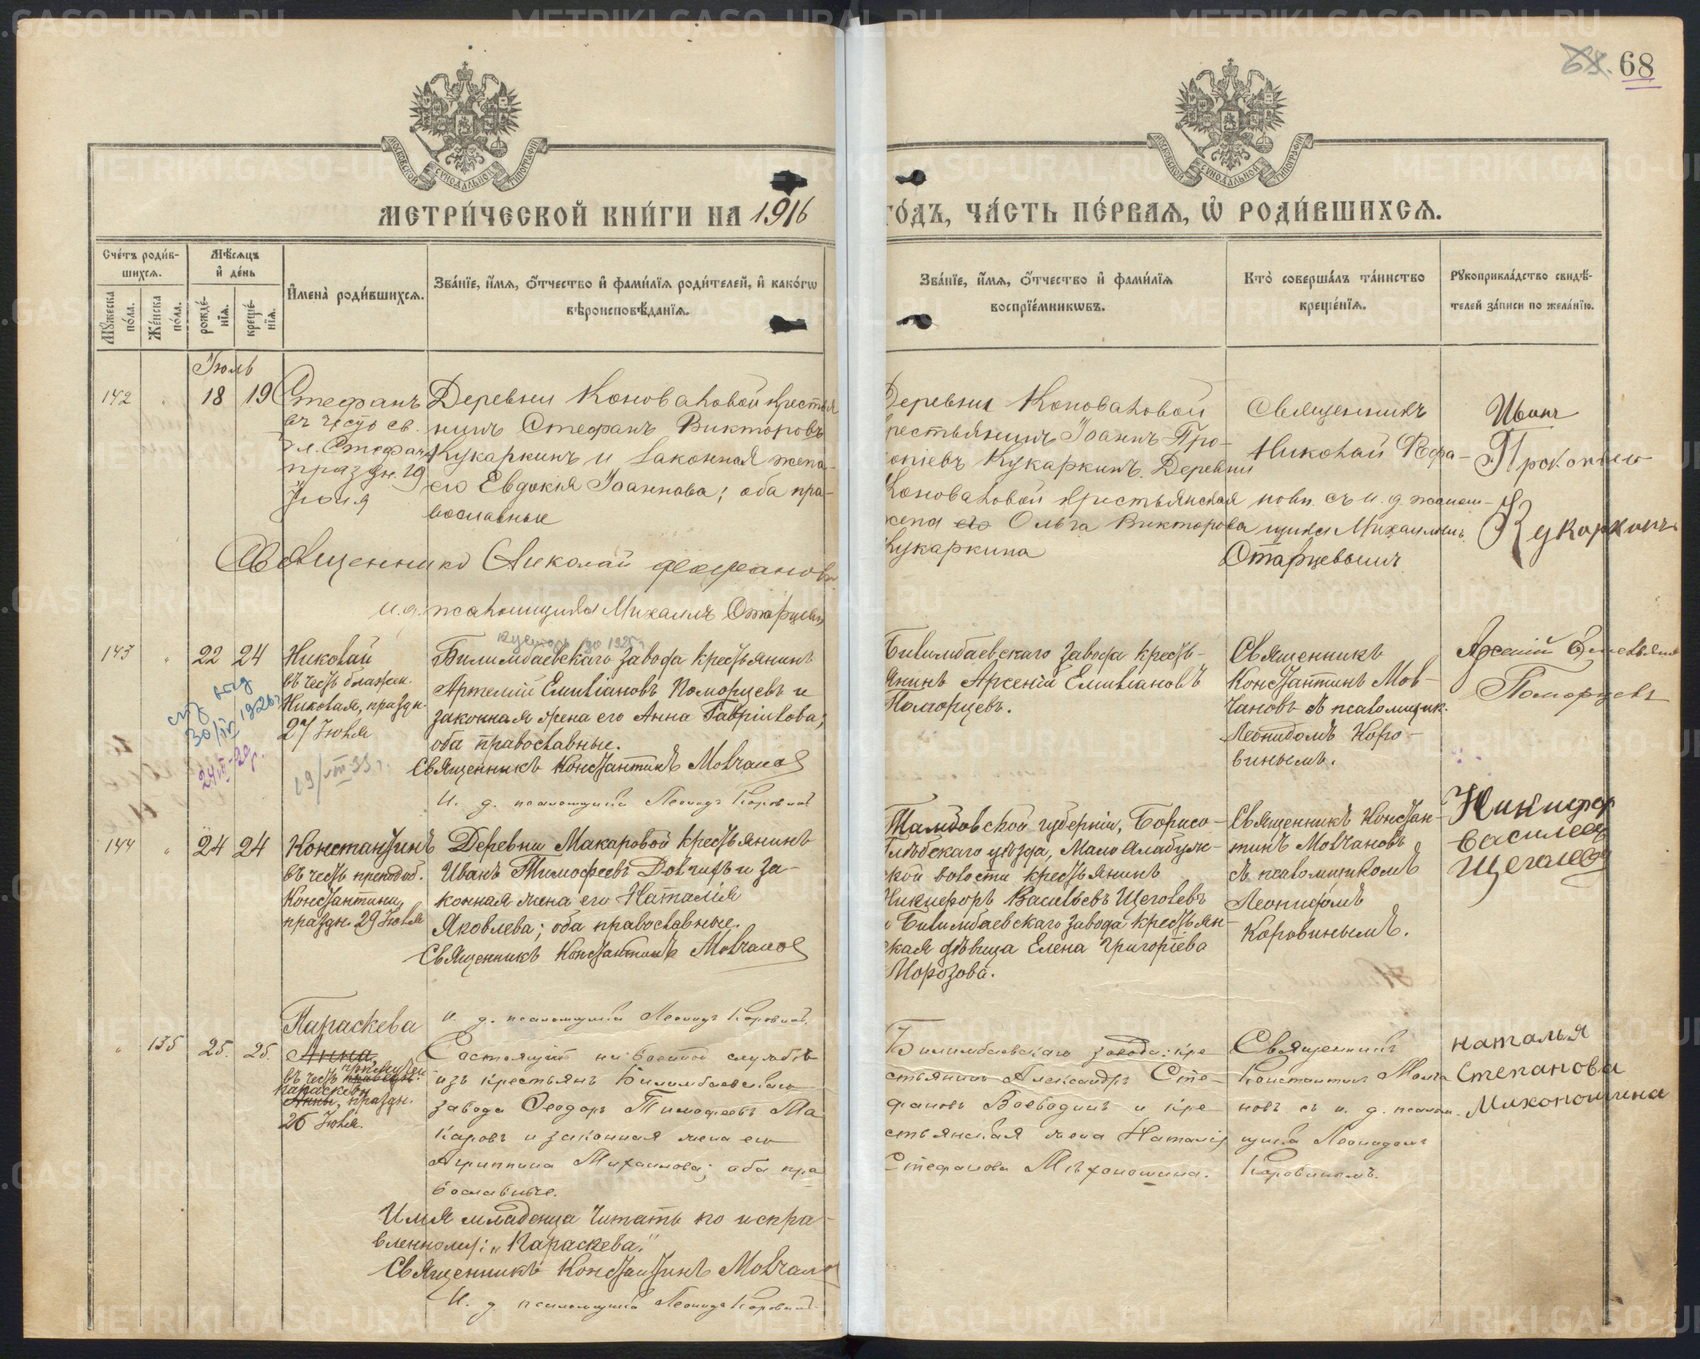 68
МЕТРИ́ЧЕСКОЙ КНИ́ГИ НА 1916
ГО́ДЪ, ЧА́СТЬ ПЕ́РВАЯ, Ѡ҆ РОДИ́ВШИХСЯ.
Сче́тъ роди́в-
шихся.
Мѣ́сяцъ
и҆ де́нь
Мꙋ́жеска
по́ла.
Же́нска
по́ла.
рожде́-
нїя.
креще́-
нїя.
И҆мена̀ роди́вшихся.
Зва́нїе, и҆́мя, о҆́тчество и҆ фами́лїя роди́телей, и҆ како́гѡ
вѣроисповѣ́данїя.
Зва́нїе, и҆́мя, о҆́тчество и҆ фами́лїя
воспрїе́мникѡвъ.
Кто̀ соверша́лъ та́инство
креще́нїя.
Рꙋкоприкла́дство свидѣ́-
телей за́писи по жела́нїю.
Іюль
142
18 19
Стефанъ
въ честь св.
праздн. 19
Іюля
Деревни Коноваловой крестья
нинъ Стефанъ Викторовъ
Кукаркинъ и законная жена
его Евдокія Іоаннова; оба пра-
вославные
Деревни Коноваловой
крестьянинъ Іоаннъ Про-
копіевъ Кукаркинъ. Деревни
Коноваловой крестьянская
жена Ольга Викторова
Кукаркина
Священникъ
Николай Фефа-
новъ съ и. д. псалом-
щика Михаиломъ
Старцевымъ
Иванъ
Прокопьев
Кукаркинъ
Священникъ Николай Фефановъ
и. д. псаломщика Михаилъ Старцевъ
143
22 24
Николай
въ честь блажен.
Николая, праздн.
27 Іюля
Билимбаевскаго завода крестьянинъ
Артемій Емиліановъ Поморцевъ и
законная жена его Анна Гавріилова;
оба православные.
Священникъ Константинъ Молчановъ
И. д. псаломщика Леонидъ Коровинъ
Билимбаевскаго завода кресть-
янинъ Арсеній Емиліановъ
Поморцевъ.
Священникъ
Константинъ Мол-
чановъ съ псаломщик.
Леонидомъ Коро-
винымъ.
Арсений
Поморцевъ
30/IV 1926
19/VII 33 г.
144
24 24
Константинъ
въ честь преподоб.
Константина,
праздн. 29 Іюля
Деревни Макаровой крестьянинъ
Иванъ Тимофеевъ и за-
конная жена его Наталія
Яковлева; оба православные.
Священникъ Константинъ Молчановъ
И. д. псаломщика Леонидъ Коровинъ
Тамбовской губерніи, Борисо-
глѣбскаго уѣзда, Мало Алабух-
ской волости крестьянинъ
Никифоръ Васильевъ Щеголевъ
и Билимбаевскаго завода крестьян-
ская дѣвица Елена Григоріева
Морозова.
Священникъ Констан-
тинъ Молчановъ
съ псаломщикомъ
Леонидомъ
Коровинымъ.
Никифор
Василев
Щеголев
135
25. 25.
Параскева
Анна,
въ честь
Параскевы
Анны, праздн.
26 Іюля.
Состоящій на военной службѣ
изъ крестьянъ Билимбаевскаго
завода Ѳеодоръ Тимофеевъ Ма
каровъ и законная жена его
Агриппина Михаилова; оба пра
вославные.
Имя младенца читать по исправ-
вленному: "Параскева."
Священникъ Константинъ Молчановъ
И. д. псаломщика Леонидъ Коровинъ
Билимбаевскаго завода: кре-
стьянинъ Александръ Сте-
фановъ Воеводинъ и кре-
стьянская жена Наталія
Стефанова Мѣхоношина.
Священникъ
Константинъ Молча
новъ съ и. д. псалом-
щика Леонидомъ
Коровинымъ.
Наталья
Степанова
Михоношина